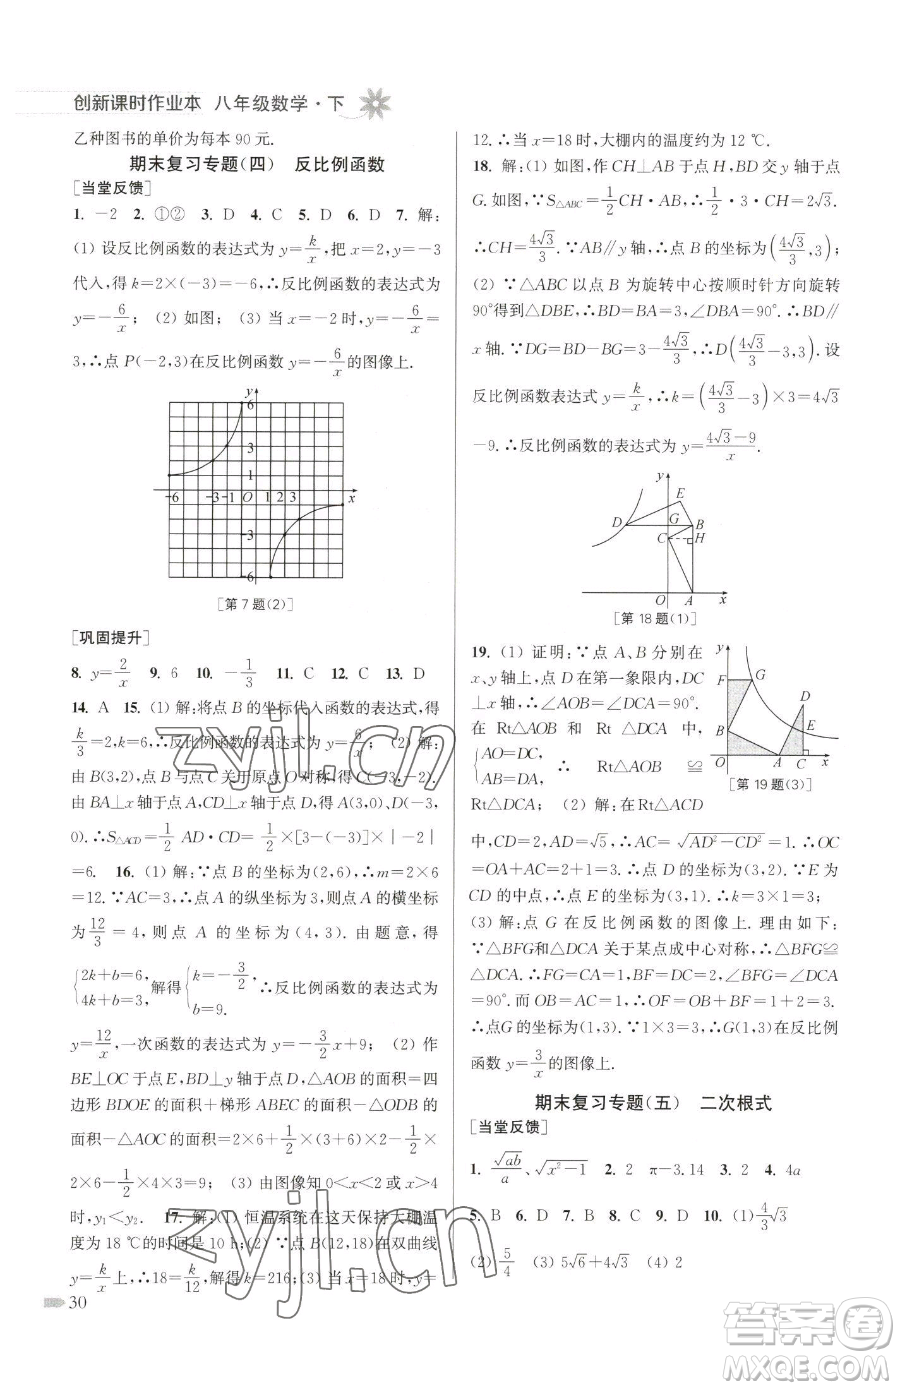 创新课时作业本 八年级数学·下
乙种图书的单价为每本 90 元.
期末复习专题(四) 反比例函数
[当堂反馈]
1. －2 2. ①② 3. D 4. C 5. D 6. D 7. 解:
(1) 设反比例函数的表达式为 y＝k/x,把 x＝2,y＝－3
代入,得 k＝2×(－3)＝－6,∴反比例函数的表达式为
y＝－6/x; (2) 如图; (3) 当 x＝－2 时,y＝－6/x＝
3,∴点 P(－2,3)在反比例函数 y＝－6/x的图像上.
y
6
3
1
-6 -3 -1 O 1 2 3 x
-3
-6
[第 7 题(2)]
[巩固提升]
8. y＝2/x 9. 6 10. －1/3 11. C 12. C 13. D
14. A 15. (1) 解:将点 B 的坐标代入函数的表达式,得
k/3＝2,k＝6,∴反比例函数的表达式为 y＝6/x; (2) 解:
由 B(3,2),点 B 与点 C 关于原点 O 对称,得 C(－3,－2).
由 BA⊥x 轴于点 A,CD⊥x 轴于点 D,得 A(3,0),D(－3,
0).∴S△ACD＝1/2 AD·CD＝1/2×[3－(－3)]×|－2|
＝6. 16. (1) 解:∵点 B 的坐标为(2,6),∴m＝2×6＝
12.∵AC＝3,∴点 A 的纵坐标为 3,则点 A 的横坐标
为12/3＝4,则点 A 的坐标为(4,3). 由题意,得
{2k＋b＝6, 4k＋b＝3,解得{k＝－3/2, b＝9.∴反比例函数的表达式为
y＝12/x,一次函数的表达式为 y＝－3/2x＋9; (2) 作
BE⊥OC 于点 E,BD⊥y 轴于点 D,△AOB 的面积＝四
边形 BDOE 的面积＋梯形 ABEC 的面积－△ODB 的
面积－△AOC 的面积＝2×6＋1/2×(3＋6)×2－1/2×
2×6－1/2×4×3＝9; (3) 由图像知 0＜x＜2 或 x＞4
时,y₁＜y₂. 17. 解:(1) 恒温系统在这天保持大棚温
度为 18 ℃的时间是 10 h;(2) ∵点 B(12,18)在双曲线
y＝k/x上,∴18＝k/12,解得 k＝216;(3) 当 x＝18 时,y＝
30
12.∴当 x＝18 时,大棚内的温度约为 12 ℃.
18. 解:(1) 如图,作 CH⊥AB 于点 H,BD 交 y 轴于点
G. 如图,∵S△ABC＝1/2CH·AB＝1/2·3·CH＝2√3.
∴CH＝4√3/3.∵AB∥y 轴,∴点 B 的坐标为(4√3/3,3);
(2) ∵△ABC 以点 B 为旋转中心按顺时针方向旋转
90°得到△DBE,∴BD＝BA＝3,∠DBA＝90°.∴BD∥
x 轴.∵DG＝BD－BG＝3－4√3/3,∴D(4√3/3－3,3). 设
反比例函数表达式 y＝k/x,∴k＝(4√3/3－3)×3＝4√3
－9.∴反比例函数的表达式为 y＝4√3－9/x.
y
E
D G B
C H
O A x
[第 18 题(1)]
19. (1) 证明:∵点 A、B 分别在
x、y 轴上,点 D 在第一象限内,DC
⊥x 轴,∴∠AOB＝∠DCA＝90°.
在 Rt△AOB 和 Rt△DCA 中,
{AO＝DC, AB＝DA,∴ Rt△AOB ≌
Rt△DCA; (2) 解:在 Rt△ACD
y
F G
D
B E
O A C x
[第 19 题(3)]
中,CD＝2,DA＝√5,∴AC＝√AD²－CD²＝1.∴OC
＝OA＋AC＝2＋1＝3.∴点 D 的坐标为(3,2).∵E 为
CD 的中点,∴点 E 的坐标为(3,1).∴k＝3×1＝3;
(3) 解:点 G 在反比例函数的图像上. 理由如下:
∵△BFG和△DCA 关于某点成中心对称,∴△BFG≌
△DCA.∴FG＝CA＝1,BF＝DC＝2,∠BFG＝∠DCA
＝90°. 而 OB＝AC＝1,∴OF＝OB＋BF＝1＋2＝3.
∴点G 的坐标为(1,3).∵1×3＝3,∴点 G 在反比例
函数 y＝3/x的图像上.
期末复习专题(五) 二次根式
[当堂反馈]
1. √ab/a、√x²－1 2. 2 π－3.14 3. 2 4. 4a
5. B 6. D 7. B 8. D 9. D 10. (1)4/3√3
(2)5/4 (3) 5√6＋4√3 (4) 2
zyjl.cn
zyjl.cn
答案卷
MXQE.COM